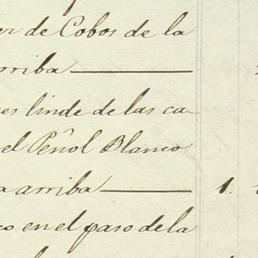 er de Cobos de la
arriba
es linde de las ca-
el Peñol Blanco
a arriba 1.
co en el paso de la